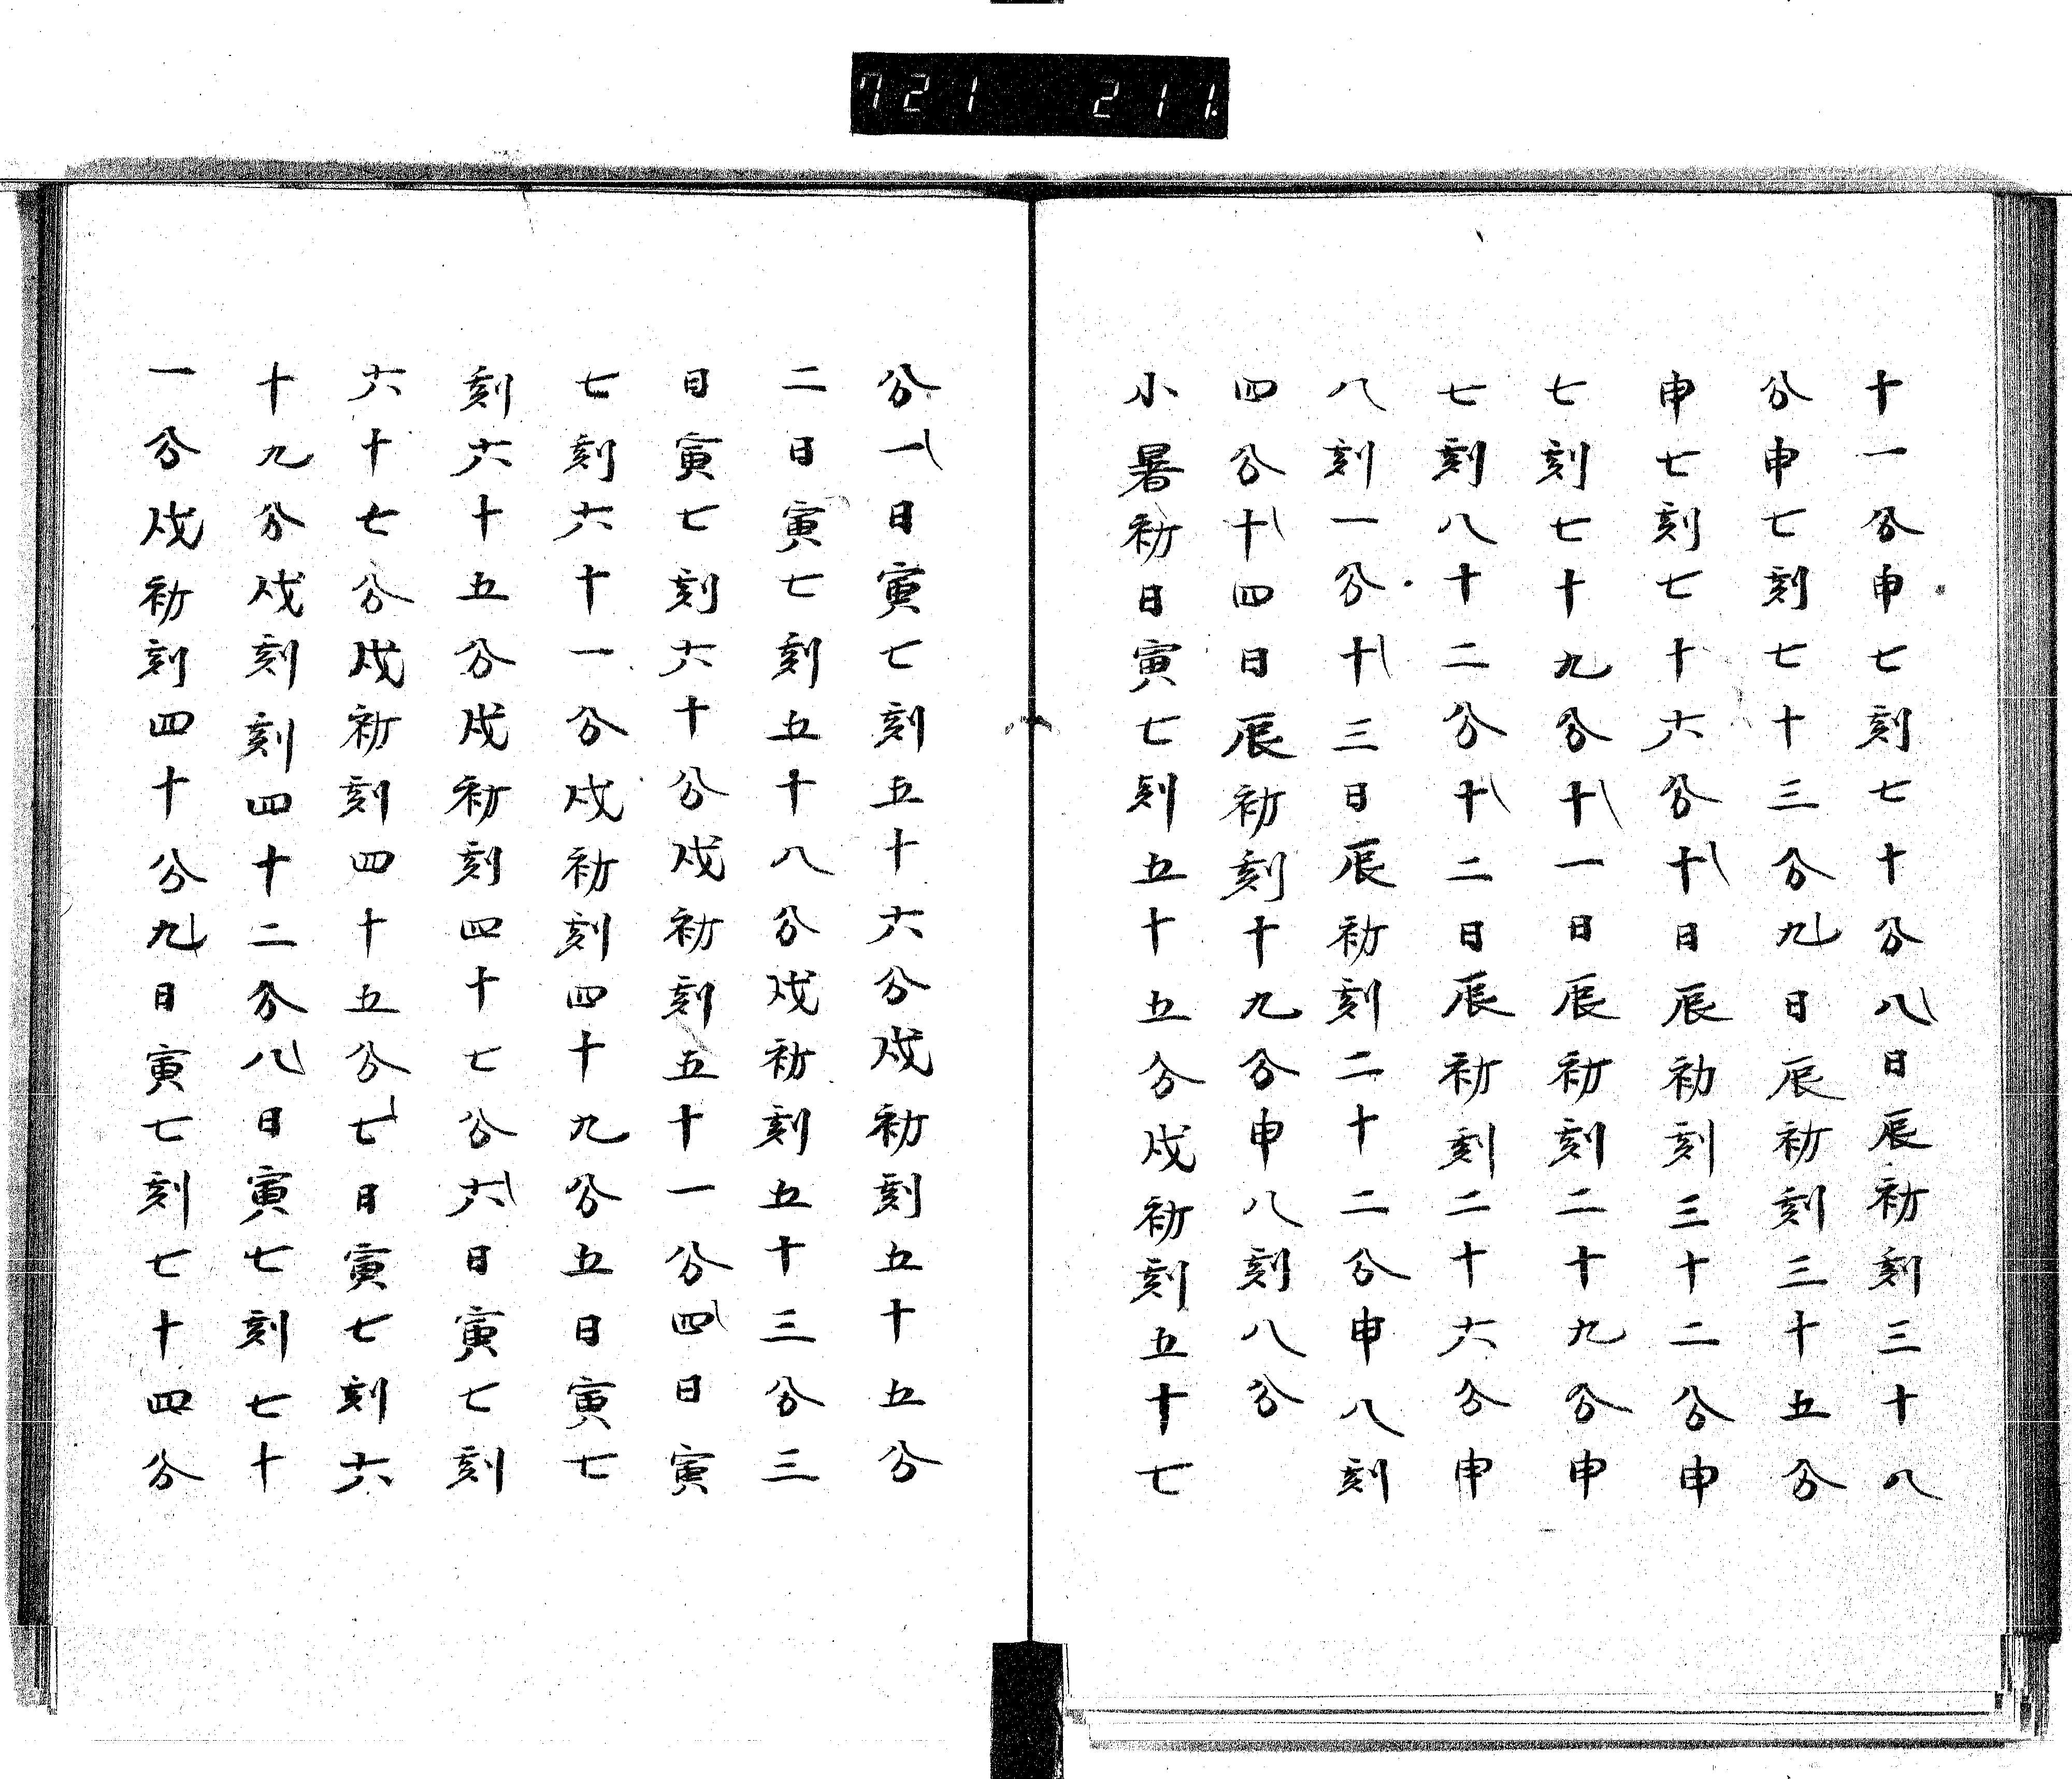 721 211.
十一分申七刻七十分八日辰初刻三十八
分申七刻七十三分九日辰初刻三十五分
申七刻七十六分十日辰初刻三十二分申
七刻七十九分十一日辰初刻二十九分申
七刻八十二分十二日辰初刻二十六分申
八刻一分十三日辰初刻二十二分申八刻
四分十四日辰初刻十九分申八刻八分
小暑初日寅七刻五十五分戌初刻五十七
分一日寅七刻五十六分戌初刻五十五分
二日寅七刻五十八分戌初刻五十三分三
日寅七刻六十分戌初刻五十一分四日寅
七刻六十一分戌初刻四十九分五日寅七
刻六十五分戌初刻四十七分六日寅七刻
六十七分戌初刻四十五分七日寅七刻六
十九分戌刻刻四十二分八日寅七刻七十
一分戌初刻四十分九日寅七刻七十四分